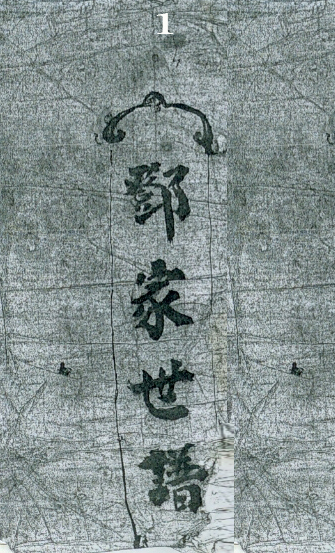 1
鄧家世譜